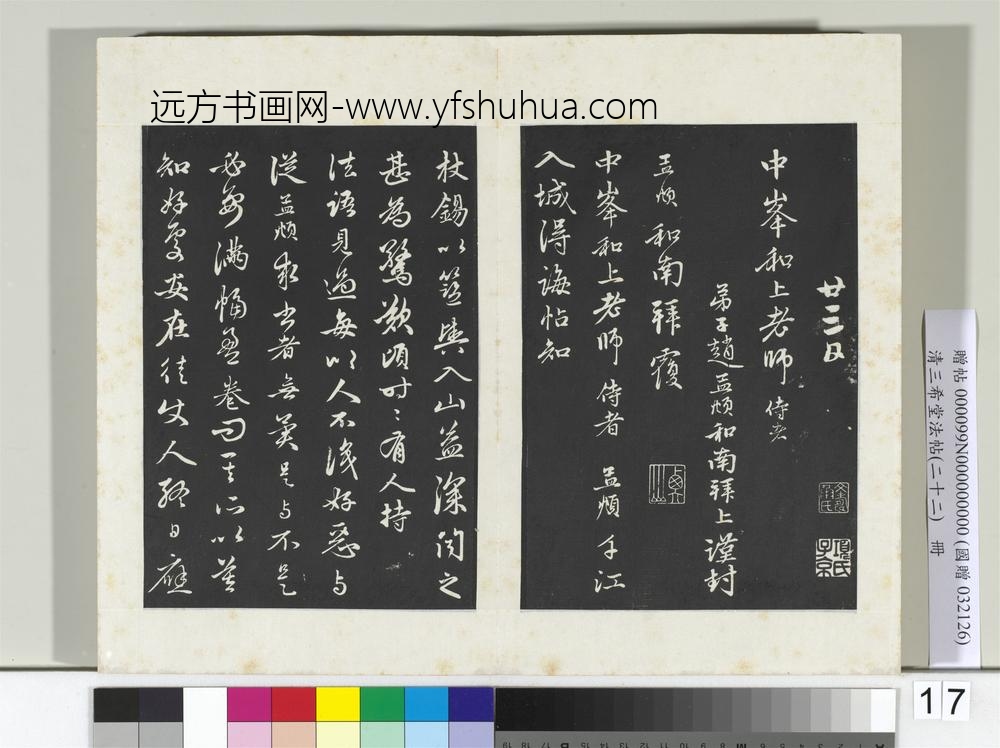 远方书画网-www.yfshuhua.com
廿三日
中峯和上老師 侍者
弟子趙孟頫和南拜上謹封
孟頫和南拜覆
中峯和上老師 侍者 孟頫 江
入城得誨帖知
杖錫以籃輿入山益深聞之
甚為驚歎頃時〻有人持
法語見過每以人不識好惡与
從孟頫求書者無異是与不是
必要滿幅盈卷問其所以莫
知好處安在徒使人終日應
項氏子京
贈帖 000099N000000000 (國贈 032126)
清三希堂法帖(二十二) 冊
17